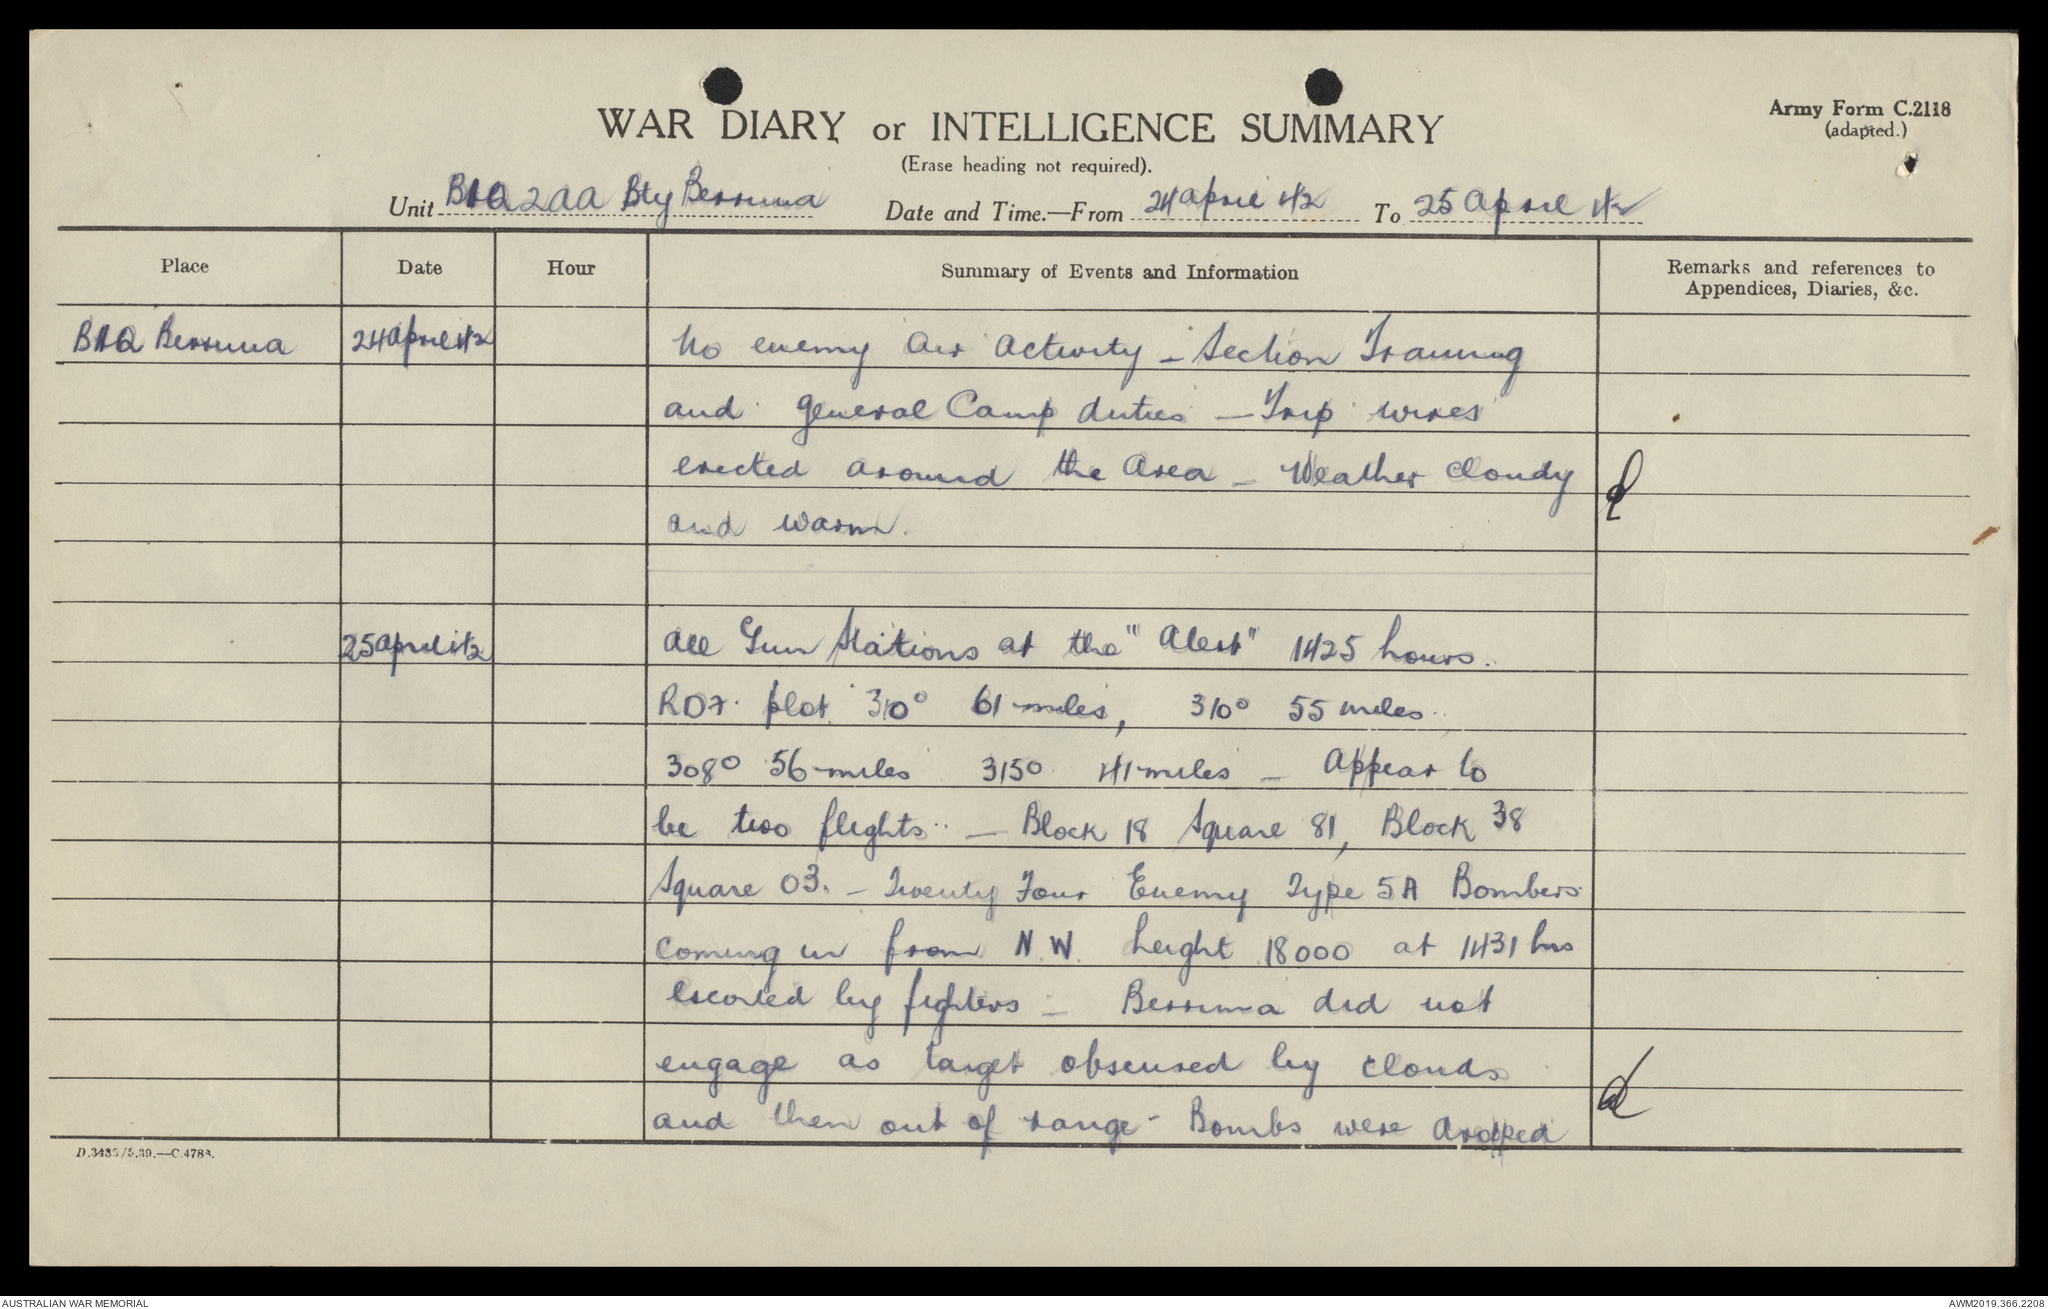 WAR DIARY or INTELLIGENCE SUMMARY
Army Form C.2118
(adapted.)
(Erase heading not required).
Unit BHQ 2AA Bty Berrima Date and Time.—From 24 April 42 To 25 April 42
Place Date Hour Summary of Events and Information Remarks and references to
Appendices, Diaries, &c.
BHQ Berrima 24 April 42 No enemy Air Activity – Section Training
and general Camp duties – Trip wires
erected around the Area – Weather cloudy
and warm.
25 April 42 All Gun Stations at the "Alert" 1425 hours.
RDF. plot 310° 61 miles, 310° 55 miles
308° 56 miles 315° 41 miles – Appear to
be two flights – Block 18 Square 81, Block 38
Square 03. – Twenty Four Enemy Type 5A Bombers
coming in from N.W. height 18000 at 1431 hrs
escorted by fighters – Berrima did not
engage as target obscured by clouds
and then out of range - Bombs were dropped
D.3483/5.39.—C.4783.
AUSTRALIAN WAR MEMORIAL
AWM2019.366.2208